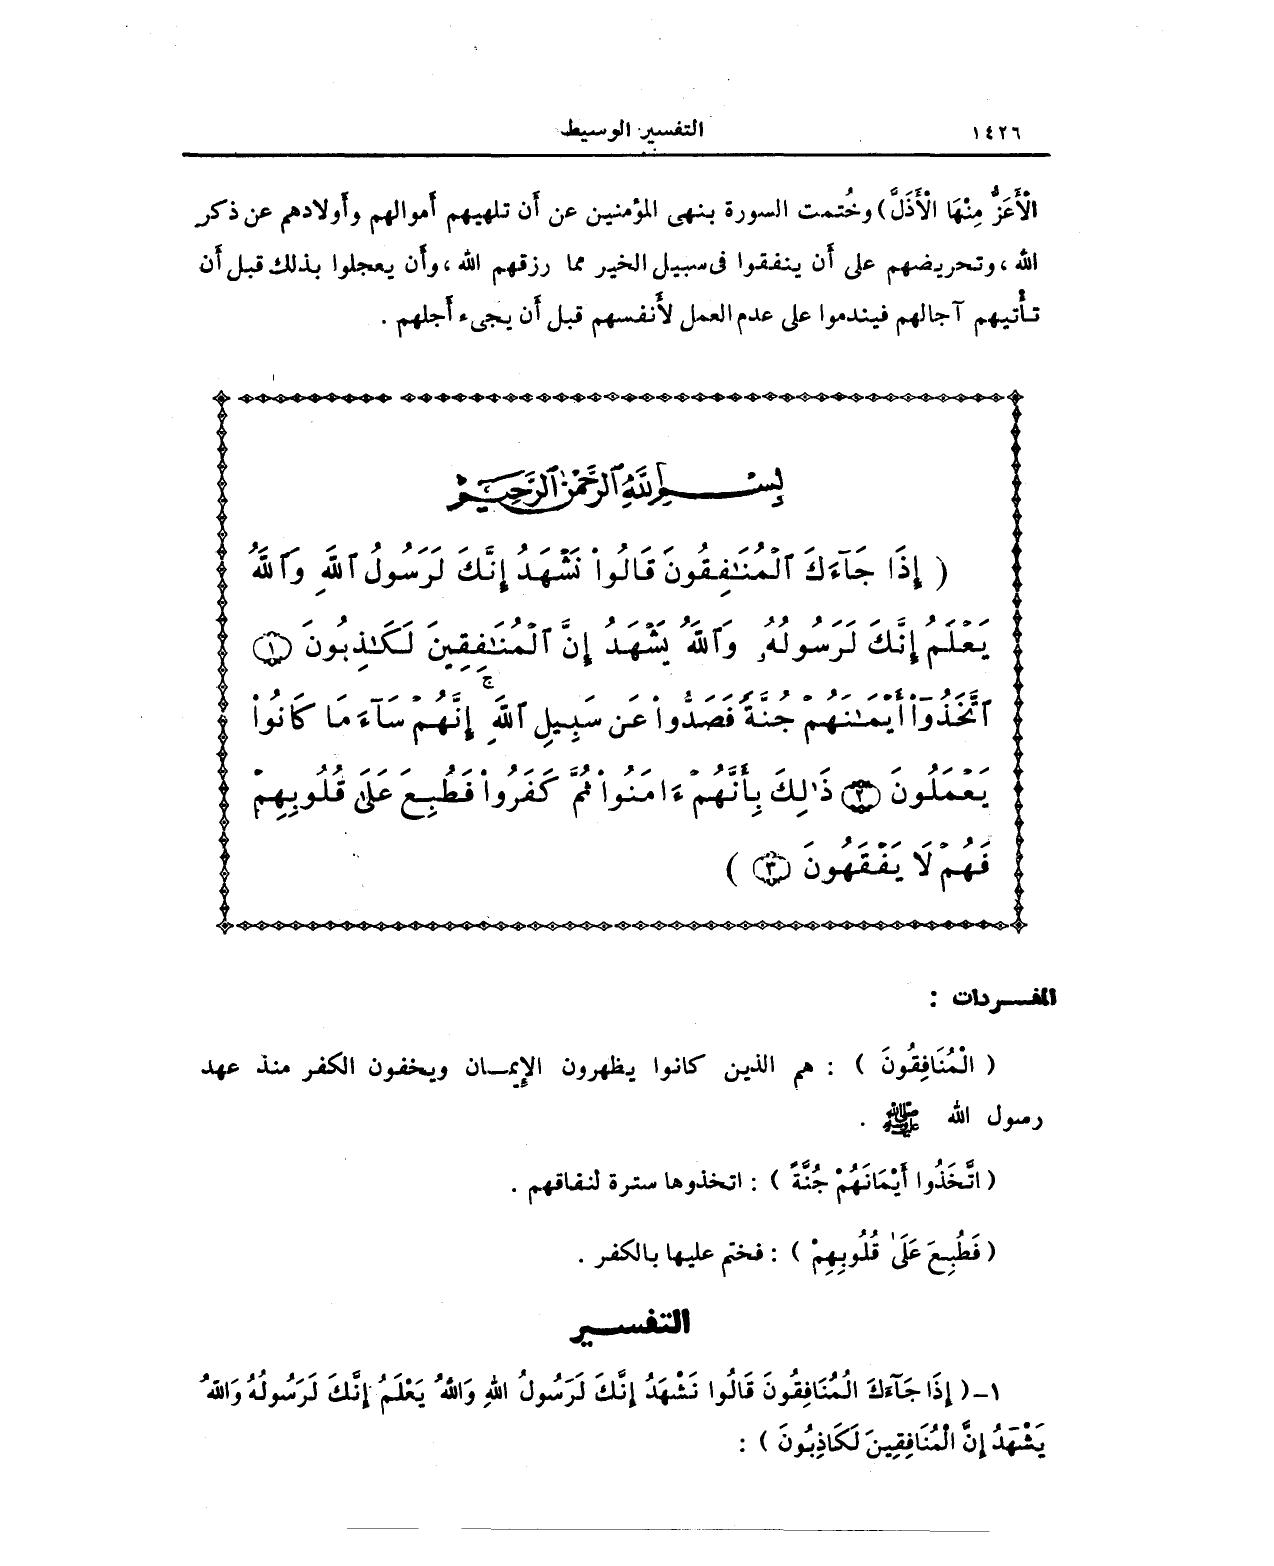 ١٤٢٦ التفسير الوسيط
الْأَعَزُّ مِنْهَا الْأَذَلَّ) وخُتمت السورة بنهى المؤمنين عن أن تلهيهم أموالهم وأولادهم عن ذكر
الله ، وتحريضهم على أن ينفقوا فى سبيل الخير مما رزقهم الله ، وأن يعجلوا بذلك قبل أن
تأتيهم آجالهم فيندموا على عدم العمل لأنفسهم قبل أن يجىء أجلهم .
بِسْمِ اللَّهِ الرَّحْمَٰنِ الرَّحِيمِ
( إِذَا جَآءَكَ ٱلْمُنَٰفِقُونَ قَالُوا۟ نَشْهَدُ إِنَّكَ لَرَسُولُ ٱللَّهِ وَٱللَّهُ
يَعْلَمُ إِنَّكَ لَرَسُولُهُۥ وَٱللَّهُ يَشْهَدُ إِنَّ ٱلْمُنَٰفِقِينَ لَكَٰذِبُونَ ﴿١﴾
ٱتَّخَذُوٓا۟ أَيْمَٰنَهُمْ جُنَّةً فَصَدُّوا۟ عَن سَبِيلِ ٱللَّهِ ۚ إِنَّهُمْ سَآءَ مَا كَانُوا۟
يَعْمَلُونَ ﴿٢﴾ ذَٰلِكَ بِأَنَّهُمْ ءَامَنُوا۟ ثُمَّ كَفَرُوا۟ فَطُبِعَ عَلَىٰ قُلُوبِهِمْ
فَهُمْ لَا يَفْقَهُونَ ﴿٣﴾ )
المفردات :
( الْمُنَافِقُونَ ) : هم الذين كانوا يظهرون الإيمان ويخفون الكفر منذ عهد
رسول الله ﷺ .
( اتَّخَذُوا أَيْمَانَهُمْ جُنَّةً ) : اتخذوها سترة لنفاقهم .
( فَطُبِعَ عَلَىٰ قُلُوبِهِمْ ) : فختم عليها بالكفر .
التفسير
١- ( إِذَا جَآءَكَ الْمُنَافِقُونَ قَالُوا نَشْهَدُ إِنَّكَ لَرَسُولُ اللهِ وَاللهُ يَعْلَمُ إِنَّكَ لَرَسُولُهُ وَاللهُ
يَشْهَدُ إِنَّ الْمُنَافِقِينَ لَكَاذِبُونَ ) :